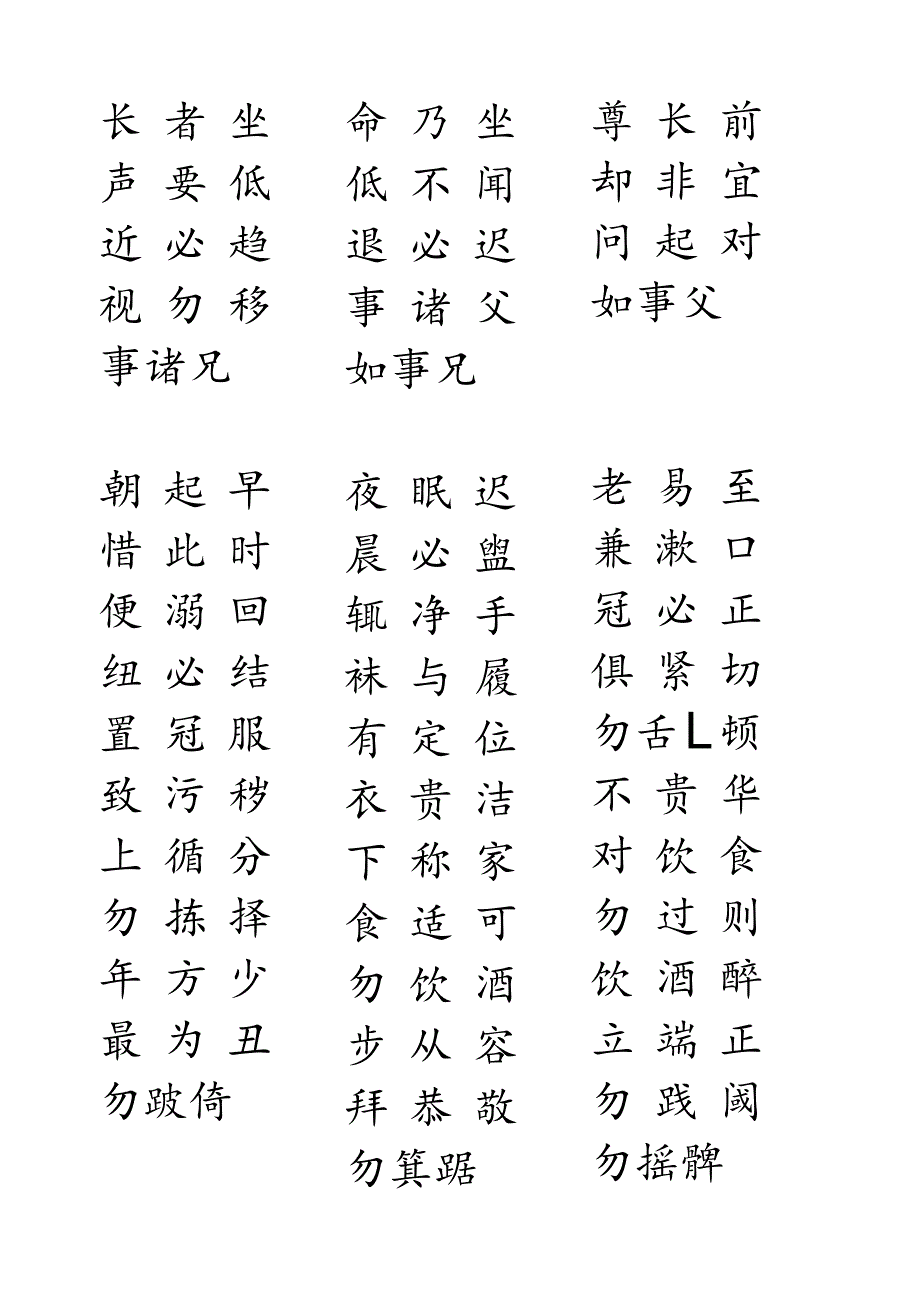 长者坐 命乃坐 尊长前
声要低 低不闻 却非宜
近必趋 退必迟 问起对
视勿移 事诸父 如事父
事诸兄 如事兄
朝起早 夜眠迟 老易至
惜此时 晨必盥 兼漱口
便溺回 辄净手 冠必正
纽必结 袜与履 俱紧切
置冠服 有定位 勿舌L顿
致污秽 衣贵洁 不贵华
上循分 下称家 对饮食
勿拣择 食适可 勿过则
年方少 勿饮酒 饮酒醉
最为丑 步从容 立端正
勿跛倚 拜恭敬 勿践阈
勿箕踞 勿摇髀